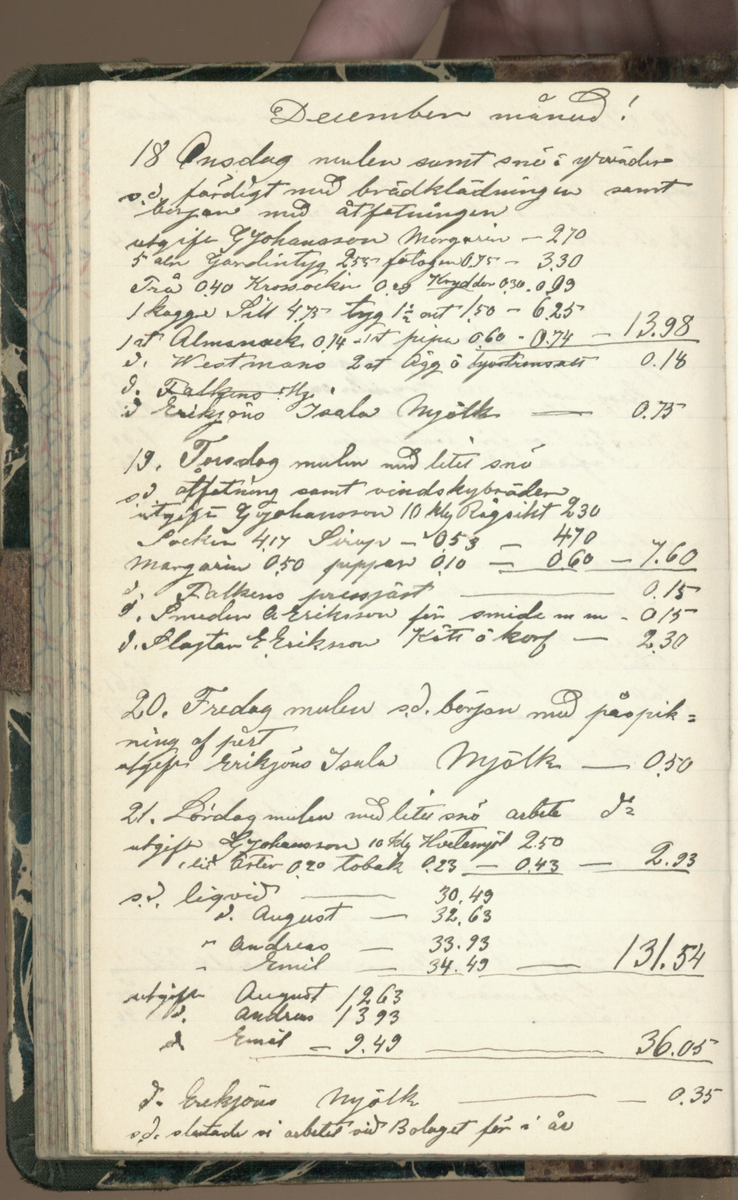 December månad!
18 Onsdag mulen samt snö i yrväder
s.d. färdigt med brädklädningen samt
början med åtfotningen
utgift G Johansson Margarin – 2.70
5 aln Gardintyg 2.55 fotogen 0.75 – 3.30
Trå 0.40 Krossocker 0.29 Kryddor 0.30. 0.99
1 kagge Sill 4.75 tyg 1½ 1.50 – 6.25
1 st Almanack 0.14 1 st pipa 0.60 – 0.74 – 13.98
d. Westmans 2 st Ägg ö 0.18
d. Falkens Mj
d Erikjöns Isala Mjölk — 0.75
19. Torsdag mulen med litet snö
s.d. åtfotning samt vindskybräden
utgift G Johansson 10 klg Rågsikt 2.30
Socker 4.17 Sirup – 0.53 – 4.70
Margarin 0.50 peppar 0.10 – 0.60 – 7.60
d. Falkens pressjäst — 0.15
d. Smeden A Eriksson för smide m m – 0.15
d. Slagtar E. Eriksson Kött ö korf — 2.30
20. Fredag mulen s.d. början med påspik=
ning af pärt
utgift Erikjöns Isala Mjölk — 0.50
21. Lördag mulen med litet snö arbete d:o
utgift G Johansson 10 klg Hvetemjöl 2.50
1 lit 0.20 tobak 0.23 — 0.43 — 2.93
s.d. liqvid — 30.49
d. August — 32.63
" Andreas — 33.93
" Emil — 34.49 — 131.54
utgift August 12.63
d. Andreas 13.93
d Emil – 9.49 — 36.05
d. Erikjöns Mjölk — 0.35
s.d. slutade vi arbetet vid Bolaget för i år